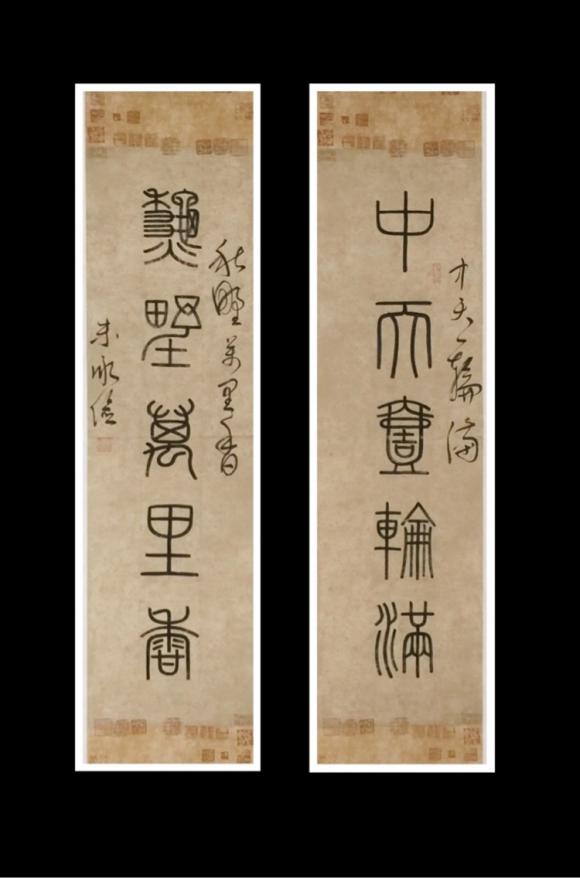 中天壹輪滿
中天一輪滿
秋野萬里香
秋野萬里香